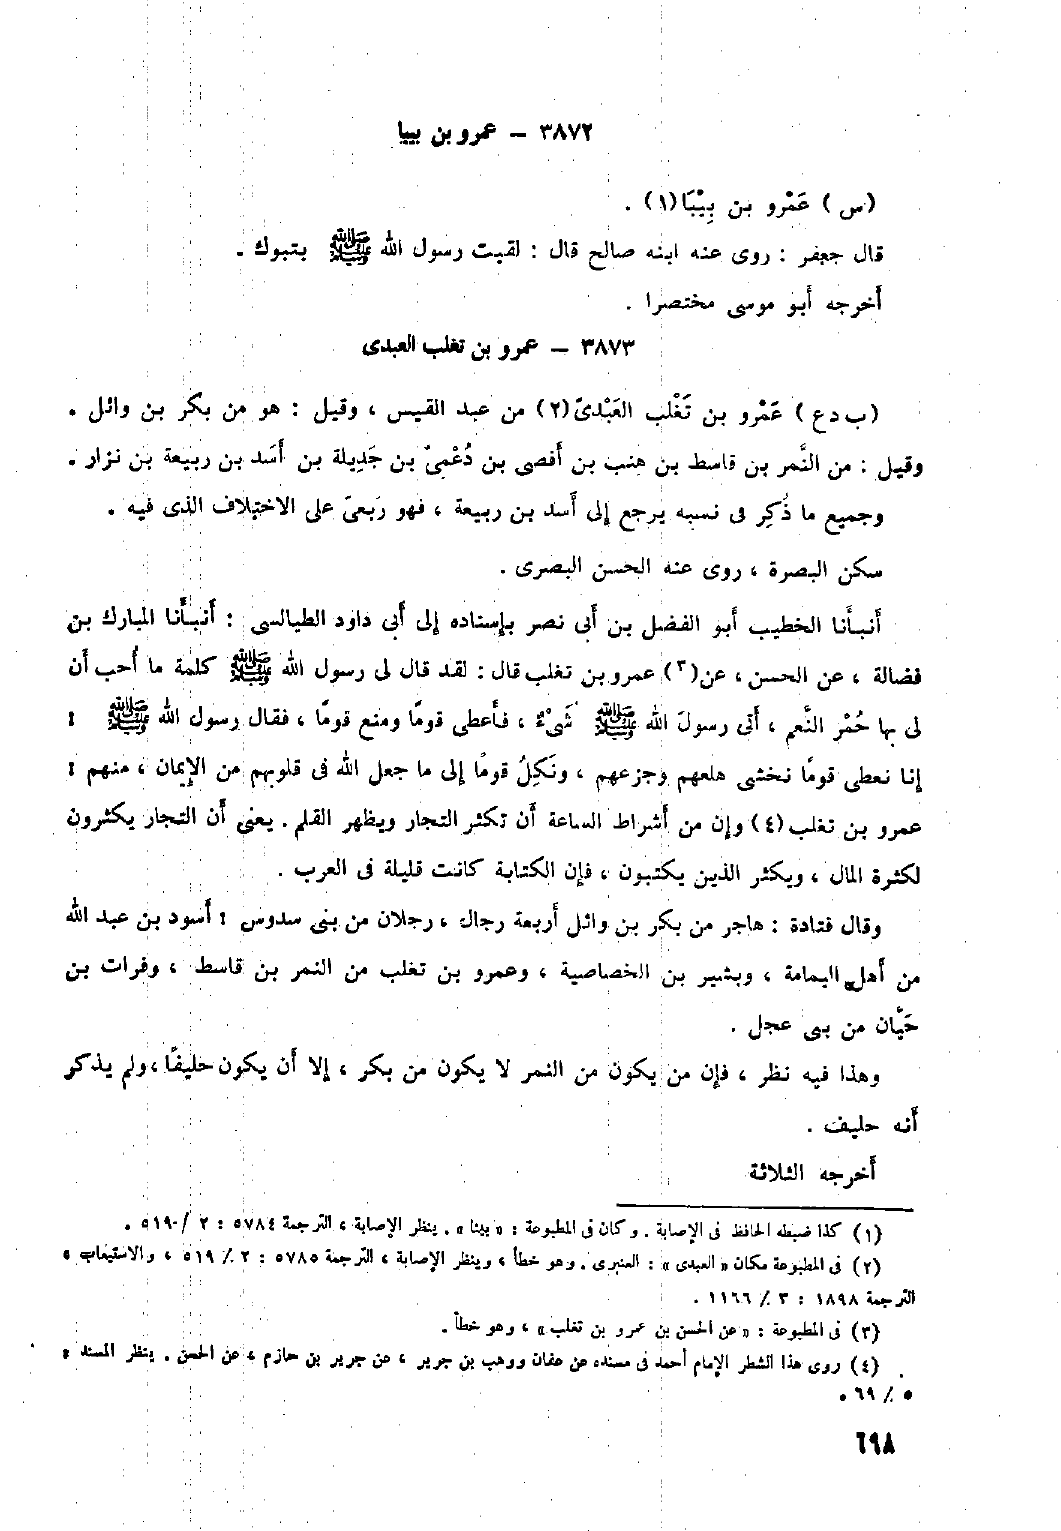 ٣٨٧٢ – عمرو بن بيبا
(س) عَمْرو بن بِيْبَا(١) .
قال جعفر : روى عنه ابنه صالح قال : لقيت رسول الله ﷺ بتبوك .
أخرجه أبو موسى مختصرا .
٣٨٧٣ – عمرو بن تغلب العبدى
(ب د ع) عَمْرو بن تَغْلب العَبْدىّ(٢) من عبد القيس ، وقيل : هو من بكر بن وائل .
وقيل : من النَّمر بن قاسط بن هنب بن أفصى بن دُعْمِىّ بن جَدِيلة بن أَسَد بن ربيعة بن نزار .
وجميع ما ذُكِر فى نسبه يرجع إلى أسد بن ربيعة ، فهو رَبعىّ على الاختلاف الذى فيه .
سكن البصرة ، روى عنه الحسن البصرى .
أنبأنا الخطيب أبو الفضل بن أبى نصر بإسناده إلى أبى داود الطيالسى : أنبأنا المبارك بن
فضالة ، عن الحسن ، عن(٣) عمرو بن تغلب قال : لقد قال لى رسول الله ﷺ كلمة ما أُحب أن
لى بها حُمْر النَّعم ، أَتى رسولَ الله ﷺ شَىْءٌ ، فأَعطى قومًا ومنع قومًا ، فقال رسول الله ﷺ :
إنا نعطى قومًا نخشى هلعهم وجزعهم ، ونَكِلُ قومًا إلى ما جعل الله فى قلوبهم من الإيمان ، منهم :
عمرو بن تغلب(٤) وإن من أشراط الساعة أن تكثر التجار ويظهر القلم . يعنى أن التجار يكثرون
لكثرة المال ، ويكثر الذين يكتبون ، فإن الكتابة كانت قليلة فى العرب .
وقال قتادة : هاجر من بكر بن وائل أربعة رجال ، رجلان من بنى سدوس : أسود بن عبد الله
من أهل اليمامة ، وبشير بن الخصاصية ، وعمرو بن تغلب من النمر بن قاسط ، وفرات بن
حَيَّان من بنى عجل .
وهذا فيه نظر ، فإن من يكون من النمر لا يكون من بكر ، إلا أن يكون حليفًا ، ولم يذكر
أنه حليف .
أخرجه الثلاثة
(١) كذا ضبطه الحافظ فى الإصابة . وكان فى المطبوعة : « بيثا » . ينظر الإصابة ، الترجمة ٥٧٨٤ : ٢ / ٥١٩٠ .
(٢) فى المطبوعة مكان « العبدى » : العنبرى . وهو خطأ ، وينظر الإصابة ، الترجمة ٥٧٨٥ : ٢ / ٥١٩ ، والاستيعاب ،
الترجمة ١٨٩٨ : ٣ / ١١٦٦ .
(٣) فى المطبوعة : « عن الحسن بن عمرو بن تغلب » ، وهو خطأ .
(٤) روى هذا الشطر الإمام أحمد فى مسنده عن عفان ووهب بن جرير ، عن جرير بن حازم ، عن الحسن . ينظر المسند :
٥ / ٦٩ .
٦٩٨